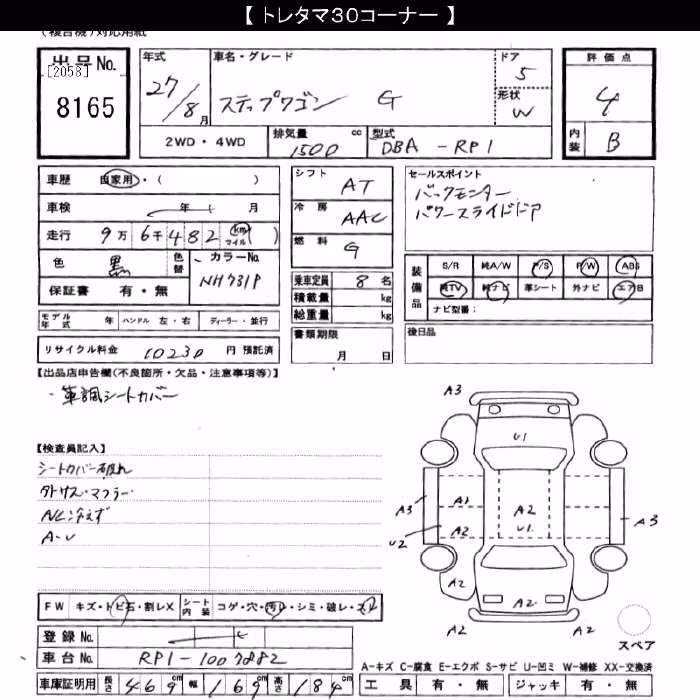 【 トレタマ30コーナー 】
(複合機)対応用紙
出品No.
[2058]
8165
年式
27/8月
車名・グレード
ステップワゴン G
ドア
5
形状
W
評価点
4
内装
B
2WD・4WD
排気量
1500 cc
型式
DBA - RP1
車歴 自家用・( )
車検 年 月
走行 9万6千482 (km マイル)
色 黒 色替
カラーNo. NH731P
保証書 有・無
シフト AT
冷房 AAC
燃料 G
乗車定員 8名
積載量 kg
総重量 kg
セールスポイント
バックモニター
パワースライドドア
装備品
S/R 純A/W P/S P/W ABS
純TV 純ナビ 革シート 外ナビ エアB
ナビ型番:
モデル年式 年 ハンドル 左・右 ディーラー・並行
リサイクル料金 10230 円 預託済
書類期限
月 日
後日品
【出品店申告欄(不良箇所・欠品・注意事項等)】
・革調シートカバー
【検査員記入】
シートカバー破れ
タトサス・マフラー
A-U
A3
U1
A3
A1
A2
A2
U1
A2
U2
A3
A2
A2
A2
A2
A2
スペア
FW キズ・トビ石・割レX
シート内装 コゲ・穴・汚レ・シミ・破レ・スレ
登録No.
車台No. RP1-1007882
車庫証明用 長さ 469cm 幅 169cm 高さ 184cm
A-キズ C-腐食 E-エクボ S-サビ U-凹ミ W-補修 XX-交換済
工具 有・無 ジャッキ 有・無